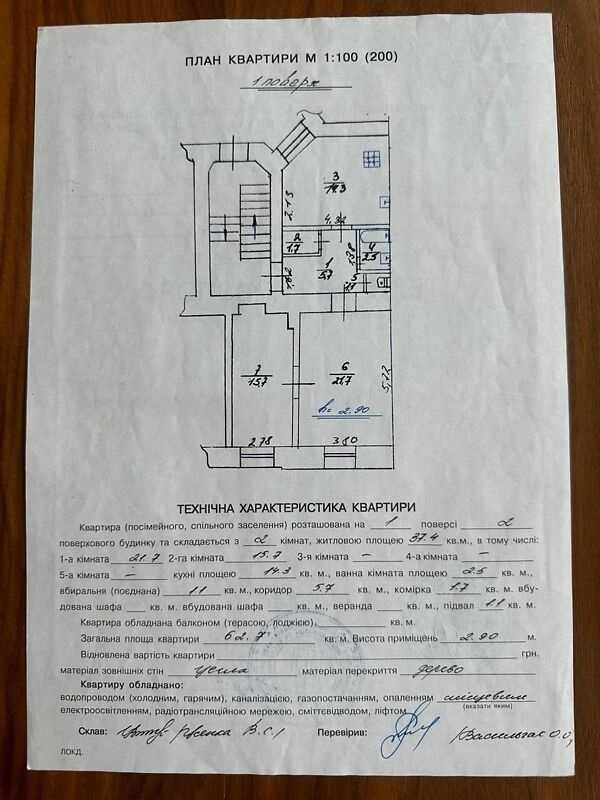 ПЛАН КВАРТИРИ М 1:100 (200)
1 поверх
3
14.3
2.13
4.32
2
1.7
1
5.7
1.38
4
2.5
5
1.1
1.62
7
15.7
6
21.7
5.72
h= 2.90
2.78
3.80
ТЕХНІЧНА ХАРАКТЕРИСТИКА КВАРТИРИ
Квартира (посімейного, спільного заселення) розташована на 1 поверсі 2
поверхового будинку та складається з 2 кімнат, житловою площею 37.4 кв.м., в тому числі:
1-а кімната 21.7 2-га кімната 15.7 3-я кімната – 4-а кімната –
5-а кімната – кухні площею 14.3 кв. м, ванна кімната площею 2.5 кв. м,
вбиральня (поєднана) 1.1 кв. м., коридор 5.7 кв. м., комірка 1.7 кв. м. вбу-
дована шафа кв. м. вбудована шафа кв. м., веранда кв. м., підвал 11 кв. м.
Квартира обладнана балконом (терасою, лоджією), кв. м.
Загальна площа квартири 62.7 кв. м. Висота приміщень 2.90 м.
Відновлена вартість квартири грн.
матеріал зовнішніх стін цегла матеріал перекриття дерево
Квартиру обладнано:
водопроводом (холодним, гарячим), каналізацією, газопостачанням, опаленням місцевим
(вказати яким)
електроосвітленням, радіотрансляційною мережею, сміттєвідводом, ліфтом
Склав: В.С. Перевірив: О.О.
ЛОКД.